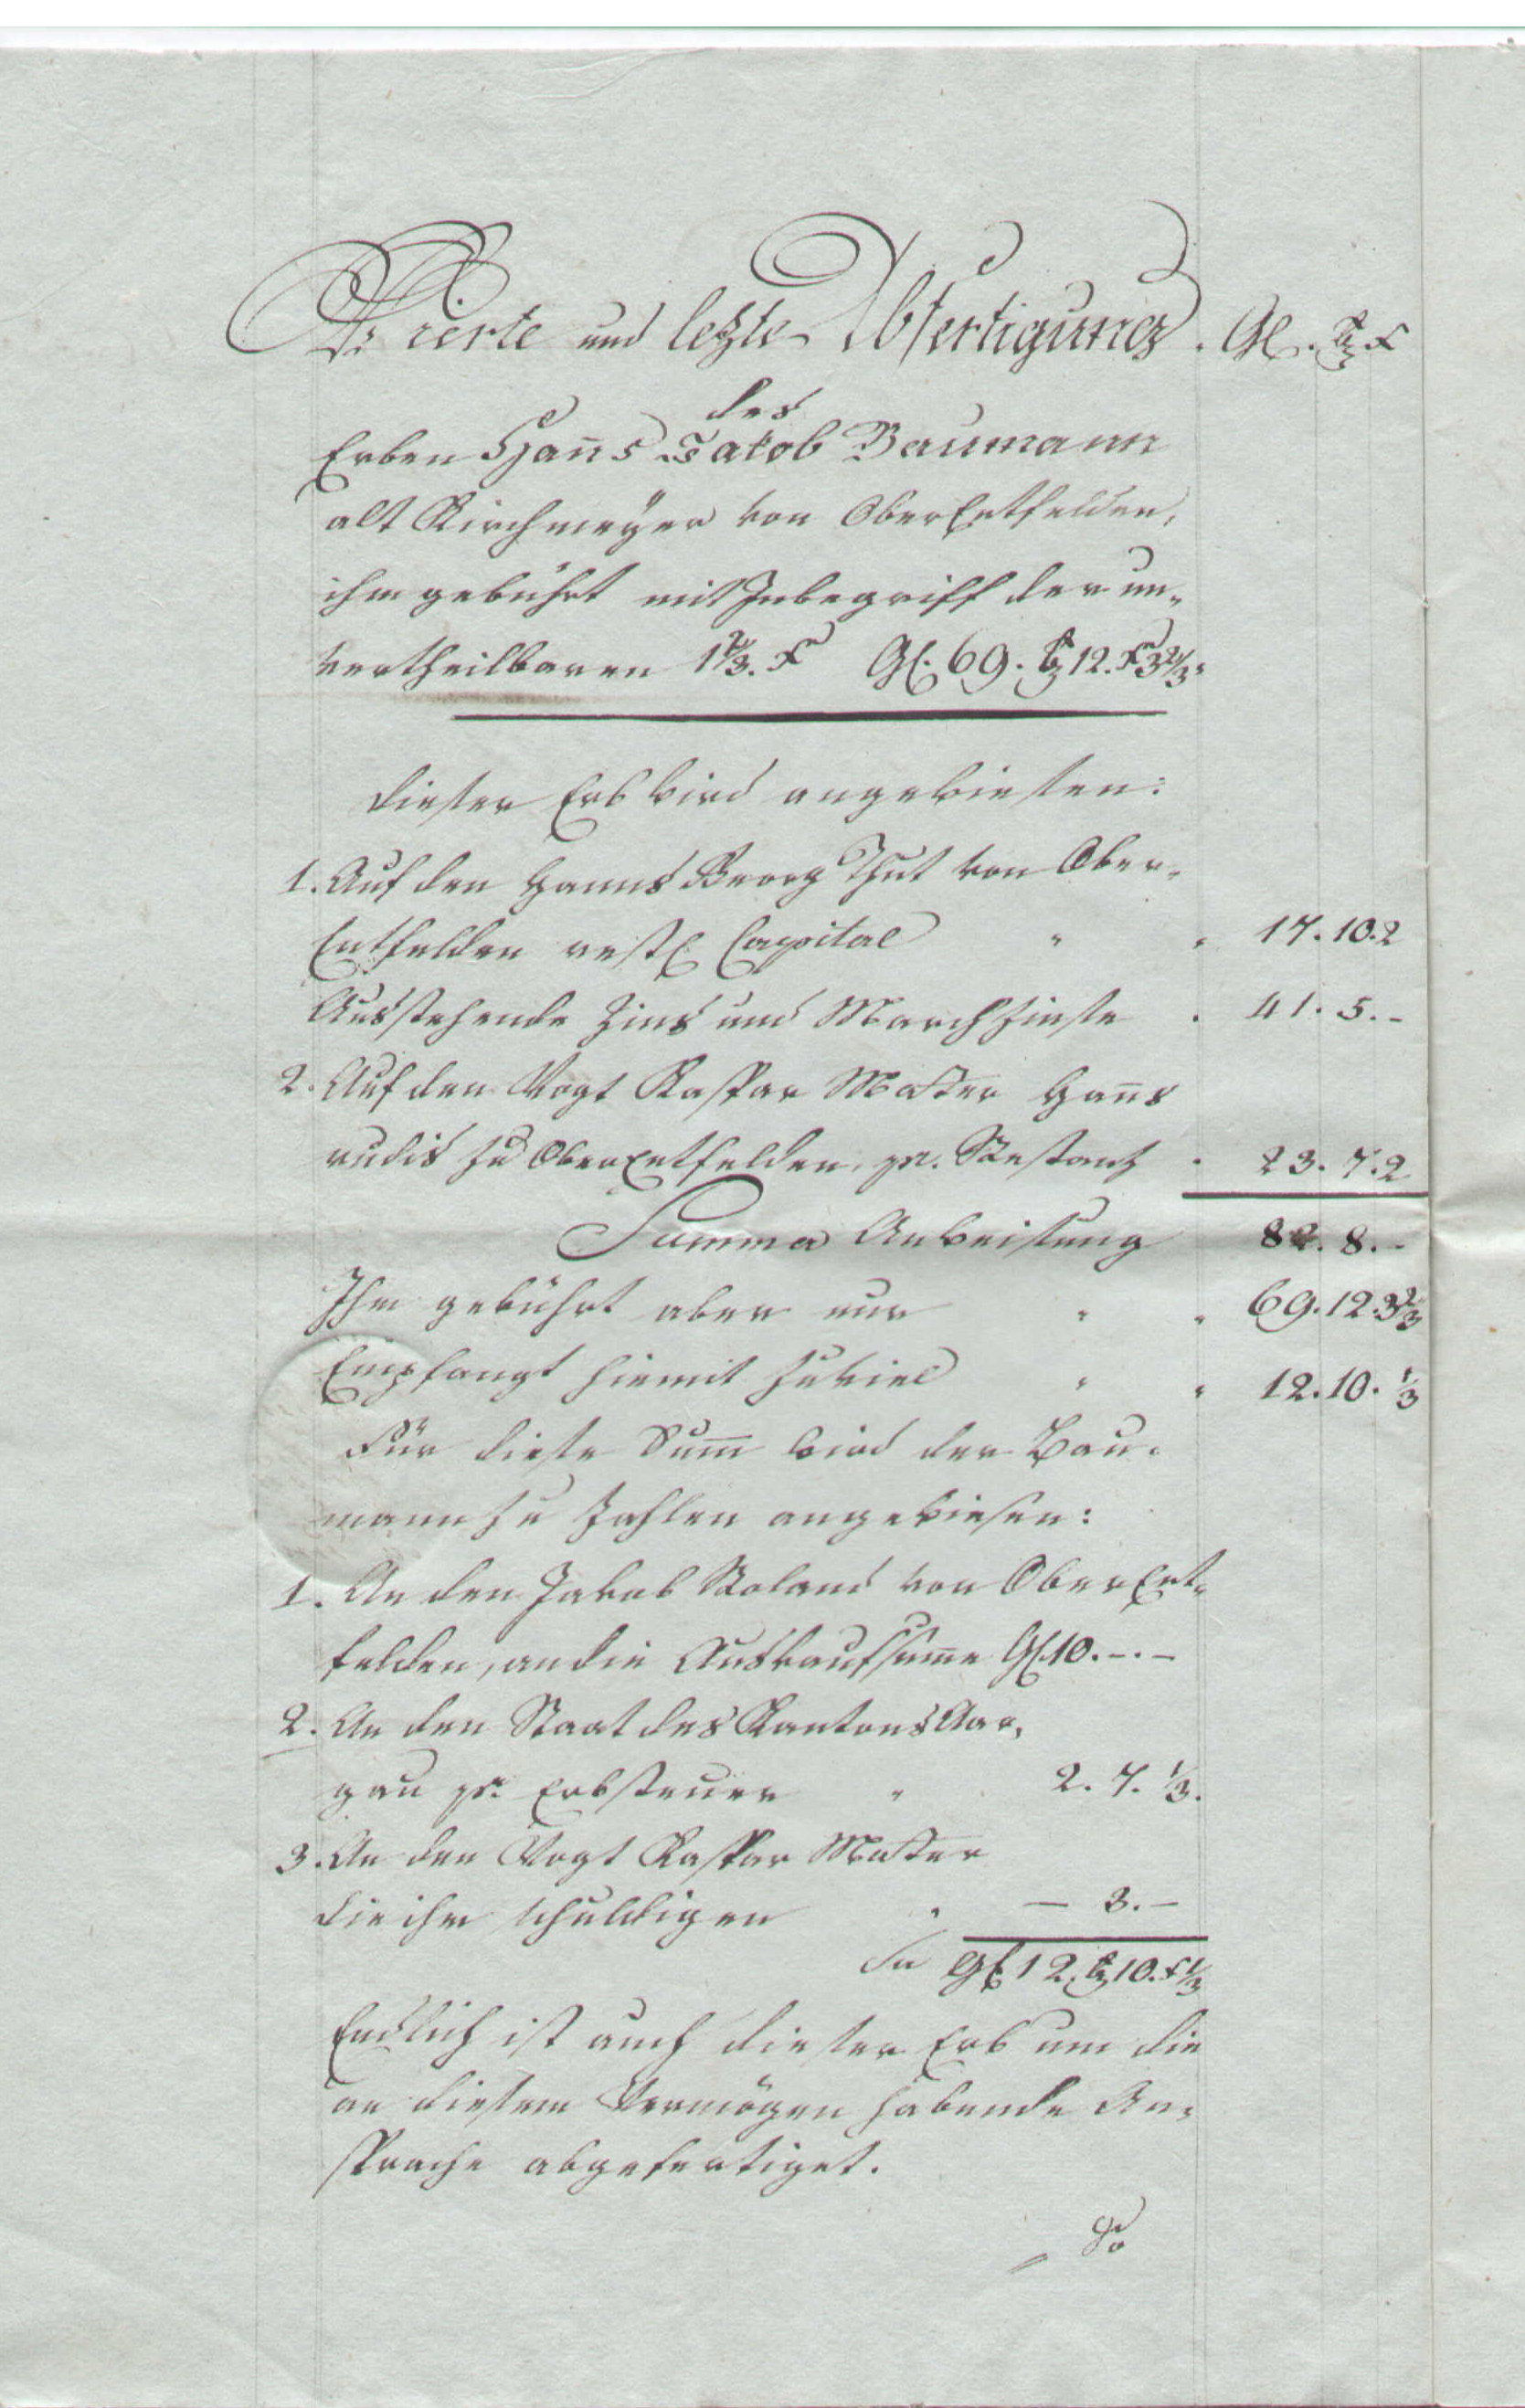 Vierte und letzte Abfertigung. Gl. bz x
des
Erben Hañs Jakob Baumann
alt Kirchmeÿer von OberEntfelden,
ihm gebührt mit Inbegriff der un-
vertheilbaren 1 2/3. x Gl. 69. bz 12. x 3 2/3.
Dieser Erb wird angewiesen:
1. Auf den Hanns Georg Thut von Ober-
Entfelden restl. Capital " " 17. 10. 2
Ausstehende Zins und Marchzinse . 41. 5. -
2. Auf den Vogt Kaspar Matter Hañs
rudis zu OberEntfelden, pr. Restanz . 23. 7. 2
Summa Anweisung 82. 8. -
Ihm gebührt aber nur " " 69. 12. 3 2/3
Empfangt hiemit zuviel " " 12. 10. 1/3
Für diese Sum̅ wird der Bau-
mann zu zahlen angewiesen:
1. An den Jakob Roland von OberEnt-
felden, an die Auskaufsum̅e Gl. 10. -. -
2. An den Staat des Kantons Aar-
gau pr. Erbsteuer " 2. 7. 1/3.
3. An den Vogt Kaspar Matter
die ihm schuldigen " — 3. —
Gl. 12. bz 10. x 1/3
Endlich ist auch dieser Erb um die
an diesem Vermögen habende An-
sprache abgefertiget.